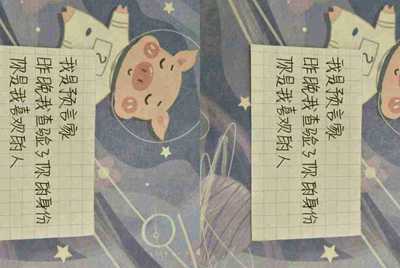 我是预言家
昨晚我查验了你的身份
你是我喜欢的人
我是预言家
昨晚我查验了你的身份
你是我喜欢的人